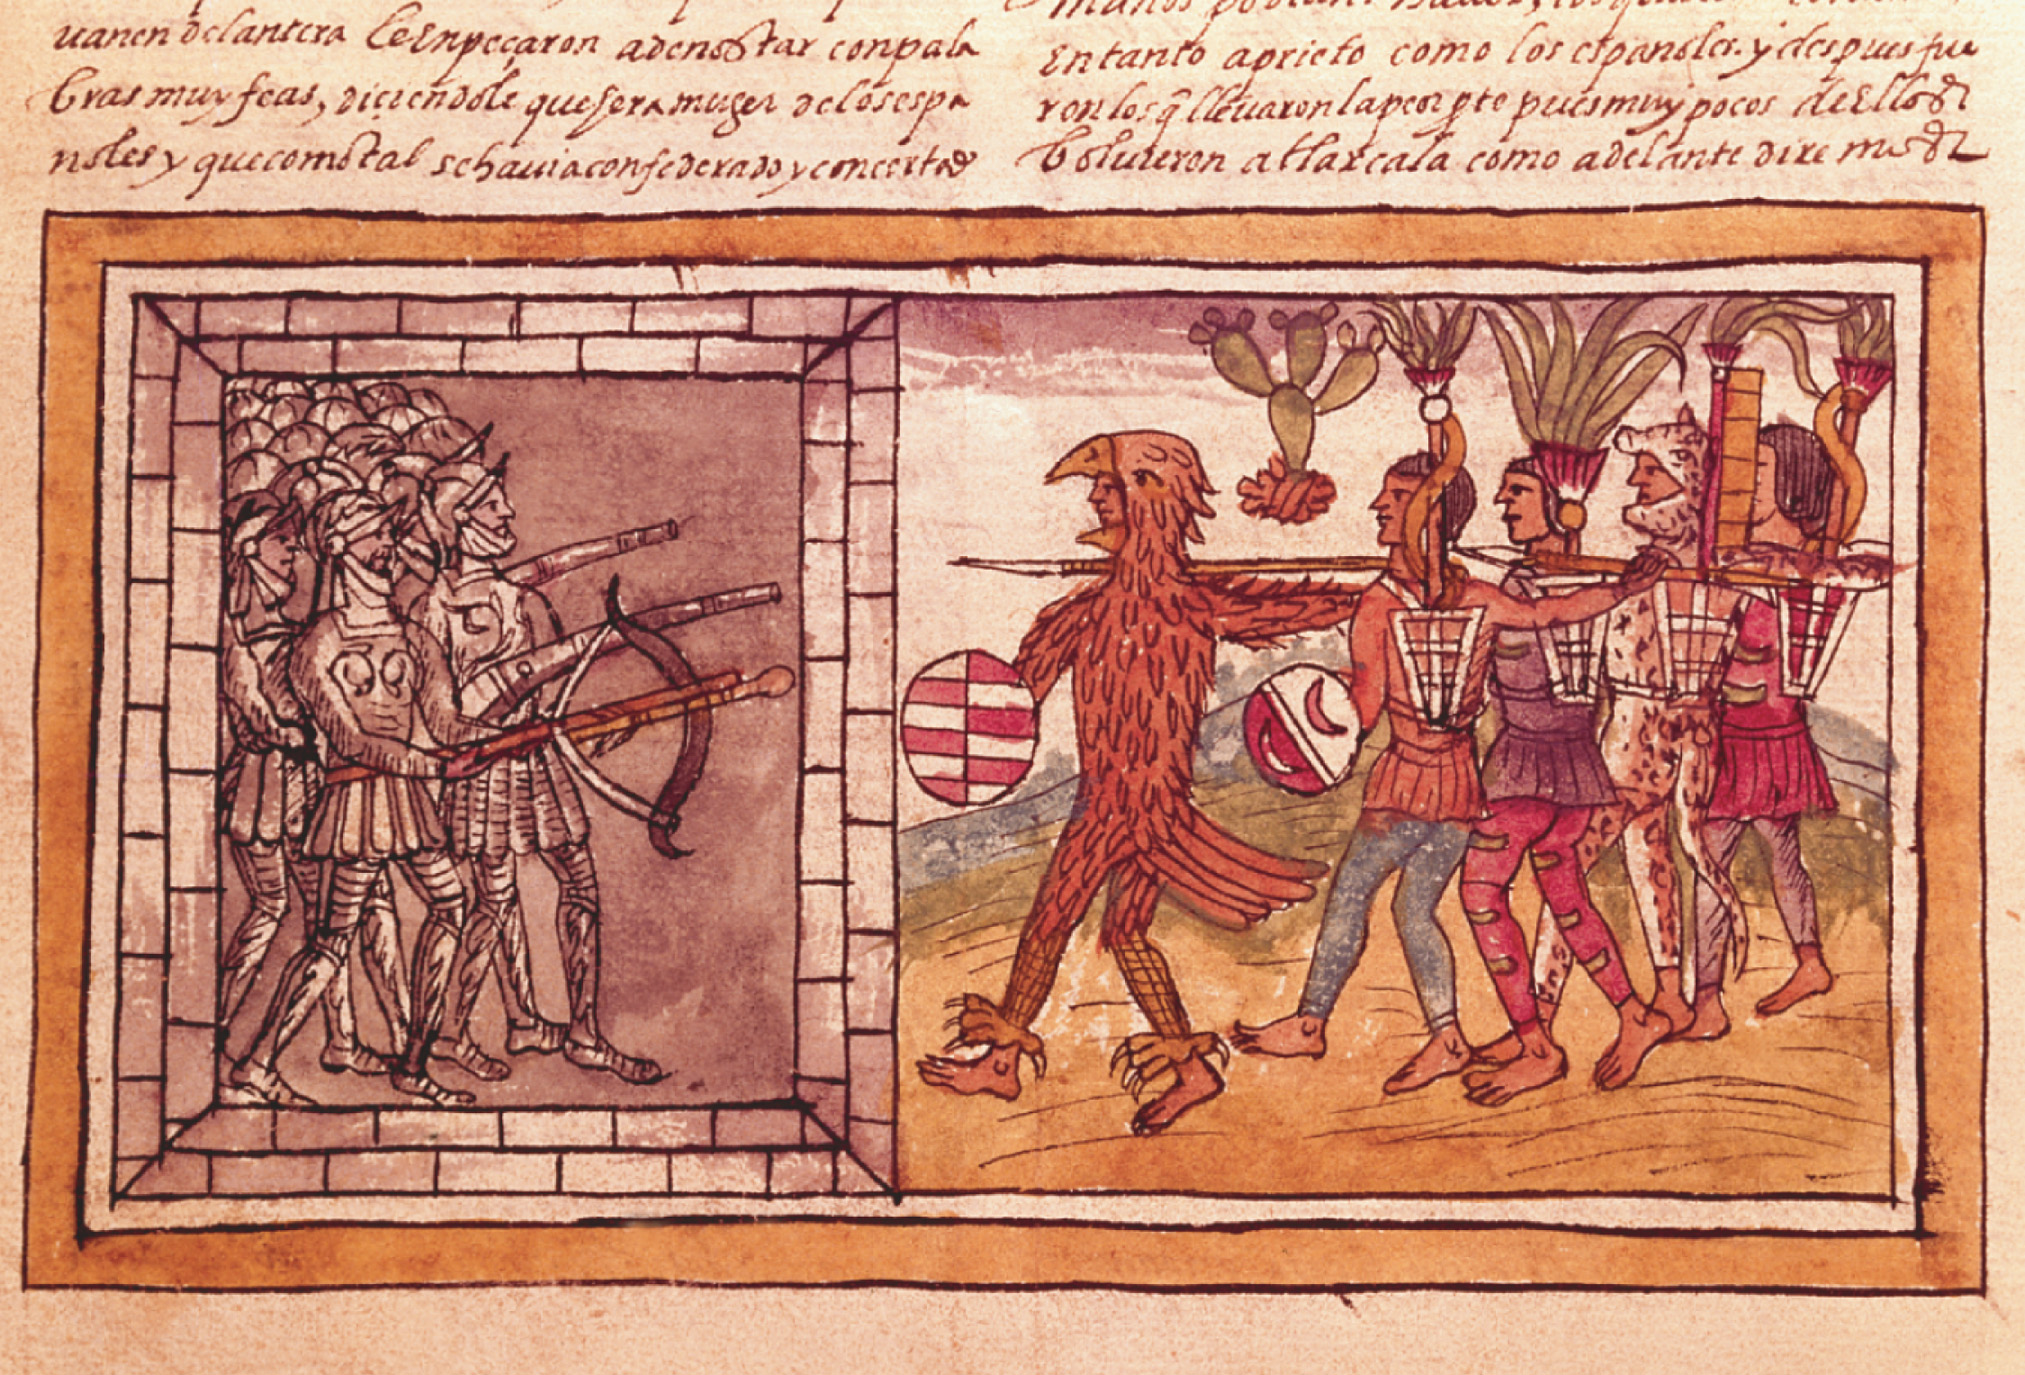 uanen delantera le enpeçaron adenostar conpala
bras muy feas, diçiendole que sera muger delos espa
noles y que como tal se hauia confederado y concertado
en tanto aprieto como los espanoles. y despues fue
ron los q̃ lleuaron la peor pte pues muy pocos de ellos
boluieron a tlaxcala como adelante dire